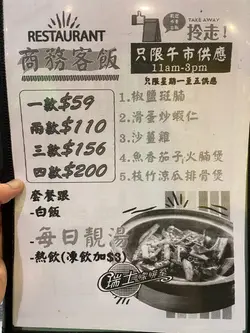 RESTAURANT
TAKE AWAY
拎走!
商務客飯
只限午市供應
11am-3pm
只限星期一至五供應
一款$59
兩款$110
三款$156
四款$200
1.椒鹽斑腩
2.滑蛋炒蝦仁
3.沙薑雞
4.魚香茄子火腩煲
5.枝竹涼瓜排骨煲
套餐跟
-白飯
-每日靚湯
-熱飲(凍飲加$3)
瑞士咖啡室